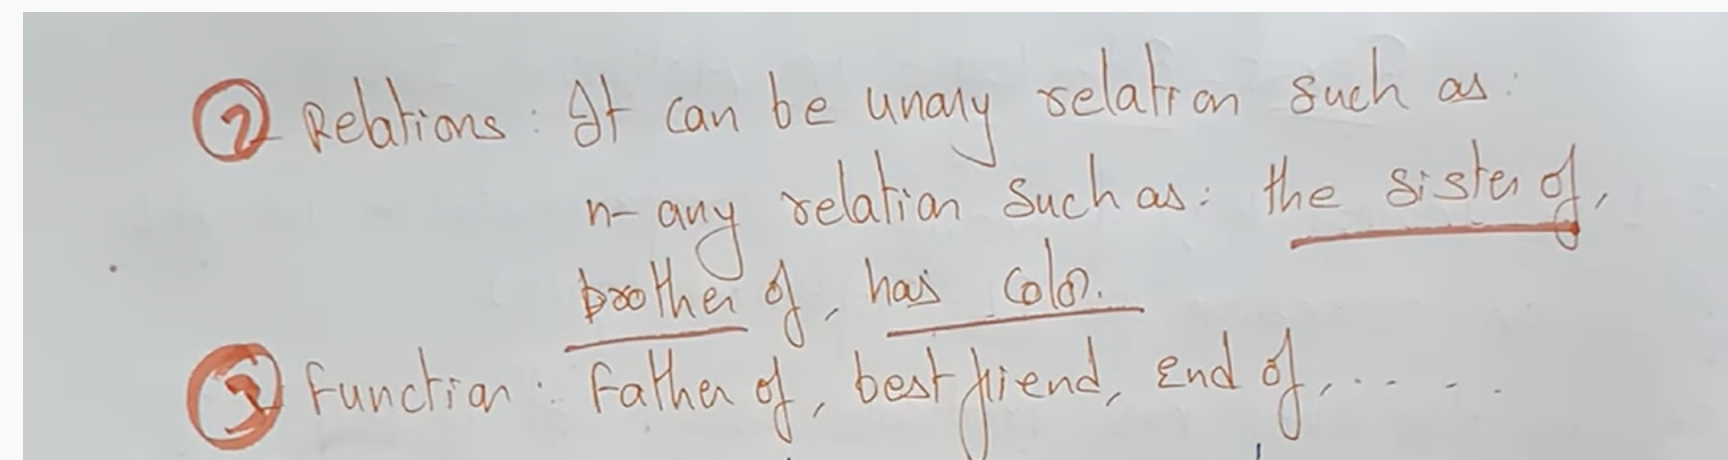 ② Relations : It can be unary relation such as:
n-any relation such as: the sister of,
brother of, has color.
③ Function : Father of, best friend, End of, .. . .